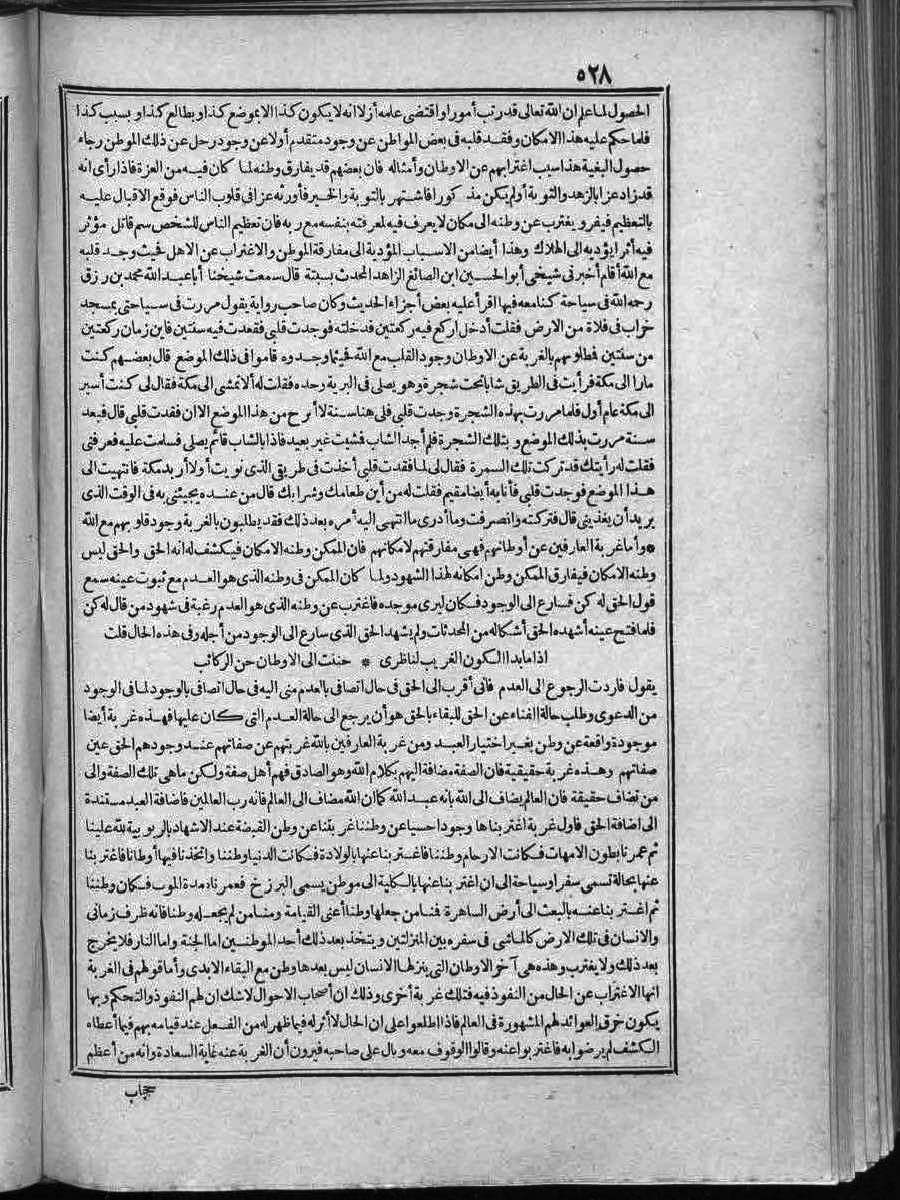 ٥٢٨
الحصول لما علم ان الله تعالى قد رتب أمورا واقتضى علمه أزلا انه لا يكون كذا الا بموضع كذا وبطالع كذا وبسبب كذا
فلما حكم عليه هذا الامكان وفقد قلبه فى بعض المواطن عن وجود متقدم أولا عن وجود رحل عن ذلك الموطن رجاء
حصول البغية هذا سبب اغترابهم عن الاوطان وأمثاله فان بعضهم قد يفارق وطنه لما كان فيه من العزة فاذا رأى انه
قد زاد عزا بالزهد والتوبة أولم يكن مذكورا فاشتهر بالتوبة والخير فأورثه عزا فى قلوب الناس فوقع الاقبال عليه
بالتعظيم فيفر ويغترب عن وطنه الى مكان لا يعرف فيه لمعرفته بنفسه مع ربه فان تعظيم الناس للشخص سم قاتل مؤثر
فيه أثرا يؤديه الى الهلاك وهذا أيضا من الاسباب المؤدية الى مفارقة الموطن والاغتراب عن الاهل فحيث وجد قلبه
مع الله أقام أخبرنى شيخى أبو الحسين ابن الصائغ الزاهد المحدث بسبتة قال سمعت شيخنا أبا عبد الله محمد بن رزق
رحمه الله فى سياحة كنا معه فيها اقرأ عليه بعض أجزاء الحديث وكان صاحب رواية يقول مررت فى سياحتى بمسجد
خراب فى فلاة من الارض فقلت أدخل اركع فيه ركعتين فدخلته فوجدت قلبى فقعدت فيه سنتين فاين زمان ركعتين
من سنتين فطلوبهم بالغربة عن الاوطان وجود القلب مع الله فحيثما وجدوه قاموا فى ذلك الموضع قال بعضهم كنت
مارا الى مكة فرأيت فى الطريق شابا تحت شجرة وهو يصلى فى البرية وحده فقلت له ألا تمشى الى مكة فقال لى كنت أسير
الى مكة عام أول فلما مررت بهذه الشجرة وجدت قلبى فلى هنا سنة لا أبرح من هذا الموضع الا ان فقدت قلبى قال فبعد
سنة مررت بذلك الموضع وبتلك الشجرة فلم أجد الشاب فمشيت غير بعيد فاذا بالشاب قائم يصلى فسلمت عليه فعرفنى
فقلت له رأيتك قد تركت تلك السمرة فقال لى لما فقدت قلبى أخذت فى طريقى الذى نويت أولا أريد مكة فانتهيت الى
هذا الموضع فوجدت قلبى فأنا به أيضا مقيم فقلت له من أين طعامك وشرابك قال من عنده يجيئنى به فى الوقت الذى
يريد أن يغذينى قال فتركته وانصرفت وما أدرى ما انتهى اليه أمره بعد ذلك فقد يطلبون بالغربة وجود قلوبهم مع الله
* وأما غربة العارفين عن أوطانهم فهى مفارقتهم لامكانهم فان الممكن وطنه الامكان فيكشف له انه الحق والحق ليس
وطنه الامكان فيفارق الممكن وطن امكانه لهذا الشهود ولما كان الممكن فى وطنه الذى هو العدم مع ثبوت عينه سمع
قول الحق له كن فسارع الى الوجود فكان ليرى موجده فاغترب عن وطنه الذى هو العدم رغبة فى شهود من قال له كن
فلما فتح عينه أشهده الحق أشكاله من المحدثات ولم يشهد الحق الذى سارع الى الوجود من أجله وفى هذه الحال قلت
اذا ما بدا الكون الغريب لناظرى * حننت الى الاوطان حن الركائب
يقول فاردت الرجوع الى العدم فانى أقرب الى الحق فى حال اتصافى بالعدم منى اليه فى حال اتصافى بالوجود لما فى الوجود
من الدعوى وطلب حالة الفناء عن الحق للبقاء بالحق هو أن يرجع الى حالة العدم التى كان عليها فهذه غربة أيضا
موجودة واقعة عن وطن بغير اختيار العبد ومن غربة العارفين بالله غربتهم عن صفاتهم عند وجودهم الحق عين
صفاتهم وهذه غربة حقيقية فان الصفة مضافة اليهم بكلام الله وهو الصادق فهم أهل صفة ولكن ماهى تلك الصفة والى
من تضاف حقيقة فان العالم يضاف الى الله بانه عبد الله كما ان الله مضاف الى العالم فانه رب العالمين فاضافة العبد مستندة
الى اضافة الحق فاول غربة اغتربناها وجودا حسيا عن وطننا غربتنا عن وطن القبضة عند الاشهاد بالربوبية لله علينا
ثم عمرنا بطون الامهات فكانت الارحام وطننا فاغتربنا عنها بالولادة فكانت الدنيا وطننا واتخذنا فيها أوطانا فاغتربنا
عنها بحالة تسمى سفرا وسياحة الى ان اغتربنا عنها بالكلية الى موطن يسمى البرزخ فعمرناه مدة الموت فكان وطننا
ثم اغتربنا عنه بالبعث الى أرض الساهرة فمنا من جعلها وطنا أعنى القيامة ومنا من لم يجعله وطنا فانه ظرف زمانى
والانسان فى تلك الارض كالماشى فى سفره بين المنزلتين ويتخذ بعد ذلك أحد الموطنين اما الجنة واما النار فلا يخرج
بعد ذلك ولا يغترب وهذه هى آخر الاوطان التى ينزلها الانسان ليس بعدها وطن مع البقاء الابدى وأما قولهم فى الغربة
انها الاغتراب عن الحال من النفوذ فيه فتلك غربة أخرى وذلك ان أصحاب الاحوال لاشك ان لهم النفوذ والتحكم وبها
يكون خرق العوائد لهم المشهورة فى العالم فاذا اطلعوا على ان الحال لا أثر له فيما ظهر له من الفعل عند قيامه بهم فيما أعطاه
الكشف لم يرضوا به فاغتربوا عنه وقالوا الوقوف معه وبال على صاحبه فيرون أن الغربة عنه غاية السعادة وانه من أعظم
حجاب